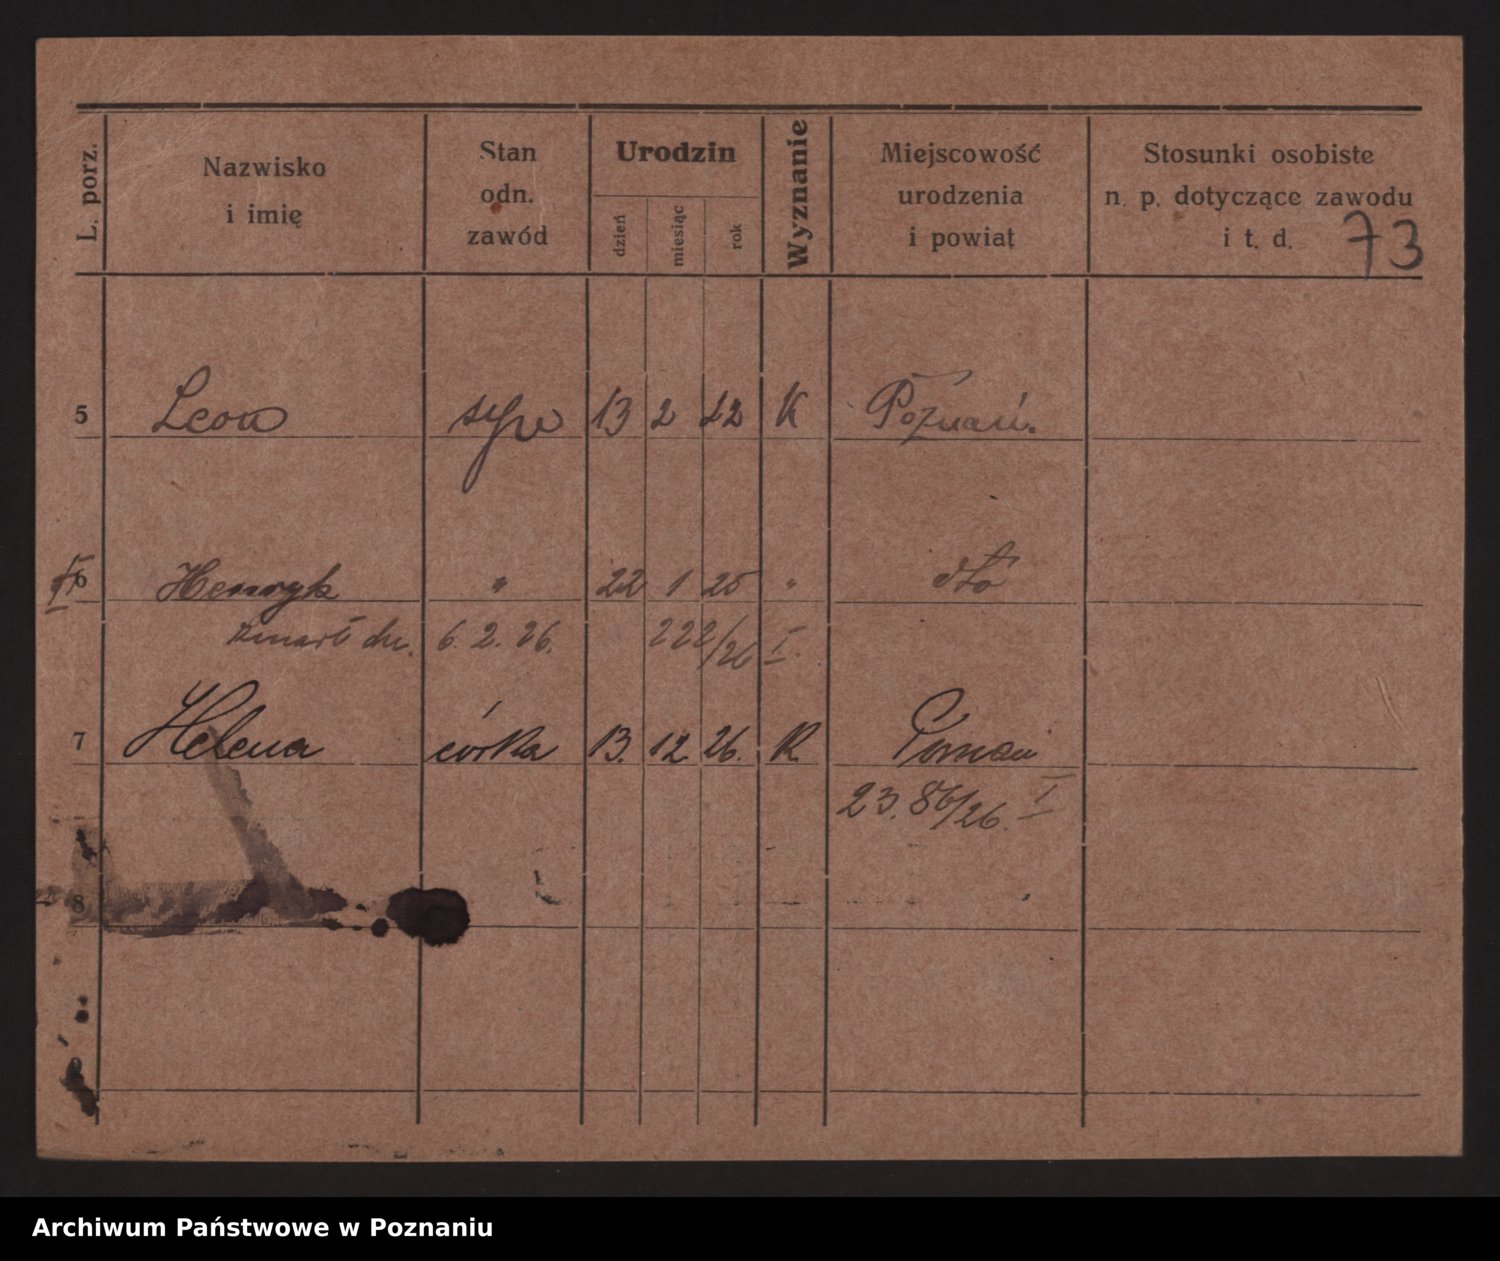 L. porz.
Nazwisko
i imię
Stan
odn.
zawód
Urodzin
dzień
miesiąc
rok
Wyznanie
Miejscowość
urodzenia
i powiat
Stosunki osobiste
n. p. dotyczące zawodu
i t. d.
73
5 Leon syn 13 2 22 K Poznań.
6 Henryk " 22 1 25 " dto
zmarł dn. 6. 2. 26. 222/26 I.
7 Helena córka 13. 12. 26. K. Poznań
23. 86/26. I
8
9
Archiwum Państwowe w Poznaniu